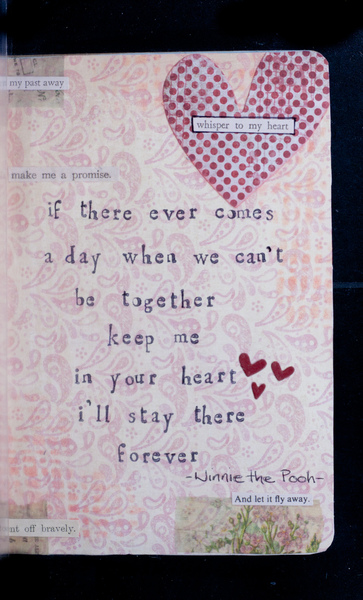 my past away
whisper to my heart
make me a promise.
if there ever comes
a day when we can't
be together
keep me
in your heart
i'll stay there
forever
-Winnie the Pooh-
And let it fly away.
off bravely.